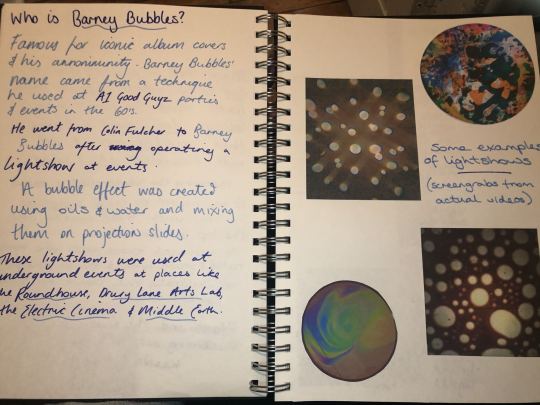 Who is Barney Bubbles?
Famous for iconic album covers
& his annonimunity. Barney Bubbles'
name came from a technique
he used at A1 Good Guyz parties
& events in the 60's.
He went from Colin Fulcher to Barney
Bubbles after using operating a
lightshow at events.
A bubble effect was created
using oils & water and mixing
them on projection slides.
These lightshows were used at
underground events at places like
the Roundhouse, Drury Lane Arts Lab,
the Electric Cinema & Middle Earth.
Some examples
of lightshows
(screengrabs from
actual videos)